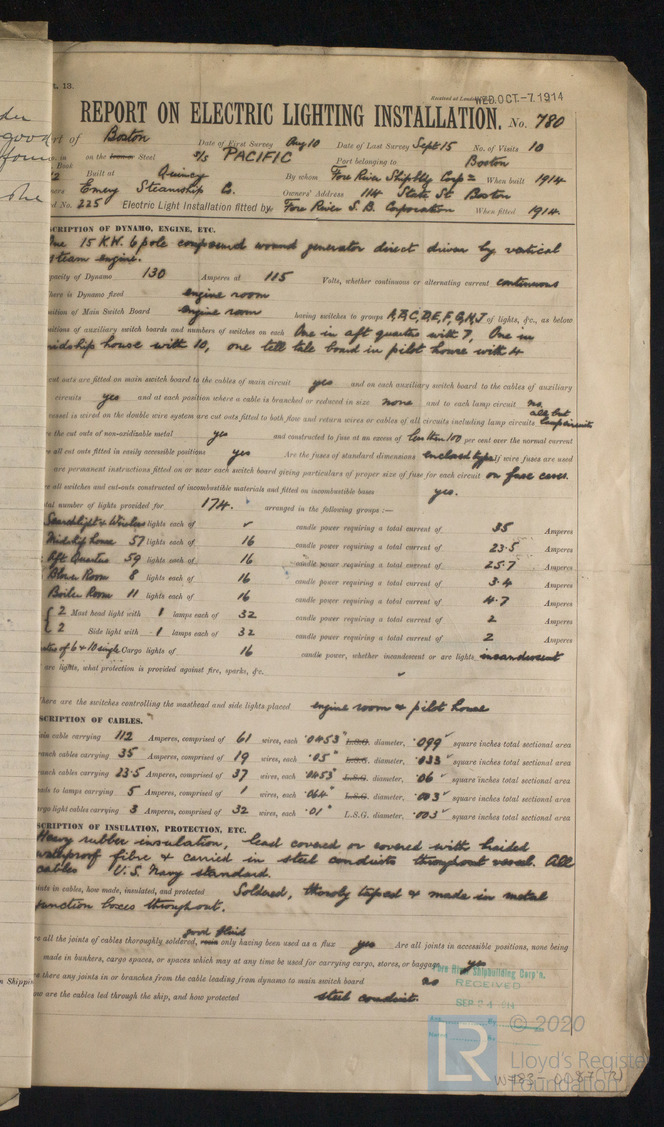 t. 13.
Received at London WED. OCT. -7. 1914
REPORT ON ELECTRIC LIGHTING INSTALLATION. No. 780
rt of Boston Date of First Survey Aug 10 Date of Last Survey Sept 15 No. of Visits 10
in Book on the Steel S/S PACIFIC Port belonging to Boston
Built at Quincy By whom Fore River Shipbldg Corpn When built 1914
Emery Steamship Co. Owners' Address 114 State St Boston
d No. 225 Electric Light Installation fitted by Fore River S. B. Corporation When fitted 1914
SCRIPTION OF DYNAMO, ENGINE, ETC.
One 15 K.W. 6 pole compound wound generator direct driven by vertical
steam engine.
pacity of Dynamo 130 Amperes at 115 Volts, whether continuous or alternating current continuous
here is Dynamo fixed engine room
osition of Main Switch Board engine room having switches to groups A, B, C, D, E, F, G, H, J of lights, &c., as below
ositions of auxiliary switch boards and numbers of switches on each One in aft quarters with 7, One in
midship house with 10, one tell tale board in pilot house with 4
cut outs are fitted on main switch board to the cables of main circuit yes and on each auxiliary switch board to the cables of auxiliary
circuits yes and at each position where a cable is branched or reduced in size none and to each lamp circuit no
vessel is wired on the double wire system are cut outs fitted to both flow and return wires or cables of all circuits including lamp circuits all but lamp circuits
re the cut outs of non-oxidizable metal yes and constructed to fuse at an excess of less than 100 per cent over the normal current
re all cut outs fitted in easily accessible positions yes Are the fuses of standard dimensions enclosed type If wire fuses are used
are permanent instructions fitted on or near each switch board giving particulars of proper size of fuse for each circuit on fuse cases.
re all switches and cut-outs constructed of incombustible materials and fitted on incombustible bases yes.
otal number of lights provided for 174. arranged in the following groups :—
Searchlight & Wireless lights each of ✓ candle power requiring a total current of 35 Amperes
Midship house 57 lights each of 16 candle power requiring a total current of 23.5 Amperes
Aft Quarters 59 lights each of 16 candle power requiring a total current of 25.7 Amperes
8 lights each of 16 candle power requiring a total current of 3.4 Amperes
Boiler Room 11 lights each of 16 candle power requiring a total current of 4.7 Amperes
2 Mast head light with 1 lamps each of 32 candle power requiring a total current of 2 Amperes
2 Side light with 1 lamps each of 32 candle power requiring a total current of 2 Amperes
of 6 & 10 single Cargo lights of 16 candle power, whether incandescent or arc lights incandescent
arc lights, what protection is provided against fire, sparks, &c. ✓
here are the switches controlling the masthead and side lights placed engine room & pilot house
SCRIPTION OF CABLES.
ain cable carrying 112 Amperes, comprised of 61 wires, each .0453" L.S.G. diameter, .099 square inches total sectional area
ranch cables carrying 35 Amperes, comprised of 19 wires, each .05" L.S.G. diameter, .033 square inches total sectional area
ranch cables carrying 23.5 Amperes, comprised of 37 wires, each .0453 L.S.G. diameter, .06 square inches total sectional area
ads to lamps carrying 5 Amperes, comprised of 1 wires, each .064" L.S.G. diameter, .003 square inches total sectional area
argo light cables carrying 3 Amperes, comprised of 32 wires, each .01" L.S.G. diameter, .003 square inches total sectional area
SCRIPTION OF INSULATION, PROTECTION, ETC.
Heavy rubber insulation, lead covered or covered with braided
waterproof fibre & carried in steel conduits throughout vessel. All
cables U.S. Navy standard.
oints in cables, how made, insulated, and protected Soldered, thoroly taped & made in metal
junction boxes throughout.
good fluid
re all the joints of cables thoroughly soldered, resin only having been used as a flux yes Are all joints in accessible positions, none being
made in bunkers, cargo spaces, or spaces which may at any time be used for carrying cargo, stores, or baggage yes
re there any joints in or branches from the cable leading from dynamo to main switch board no
ow are the cables led through the ship, and how protected steel conduit.
Fore River Shipbuilding Corp'n.
RECEIVED
SEP 24
n Shippin
LR
© 2020
Lloyd's Register
Foundation
W783-0087(1/2)